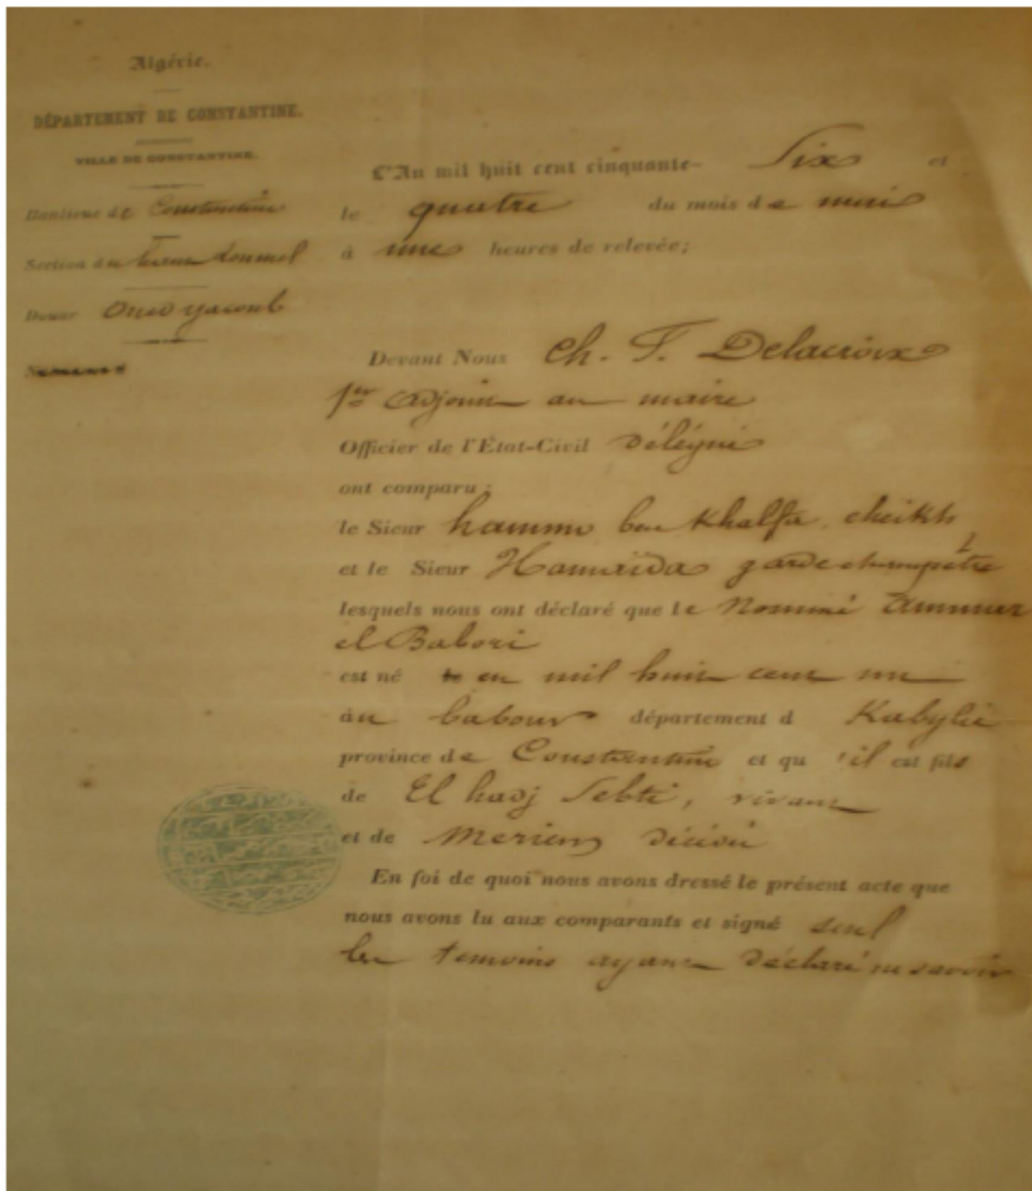 Algérie.
DÉPARTEMENT DE CONSTANTINE.
VILLE DE CONSTANTINE.
Banlieue de Constantine
Section du
Douar Oued yacoub
L'An mil huit cent cinquante- Six et
le quatre du mois de mai
à une heures de relevée;
Devant Nous Ch. F. Delacroix
1er adjoint au maire
Officier de l'État-Civil délégué
ont comparu;
le Sieur hammo ben Khalfa cheikh
et le Sieur Hamaïda garde champêtre
lesquels nous ont déclaré que le nommé ammar
el Babori
est né en mil huit cent un
au babour département d Kabylie
province de Constantine et qu'il est fils
de El hadj Sebti, vivant
et de Meriem décédé
En foi de quoi nous avons dressé le présent acte que
nous avons lu aux comparants et signé seul
les temoins ayant déclaré ne savoir